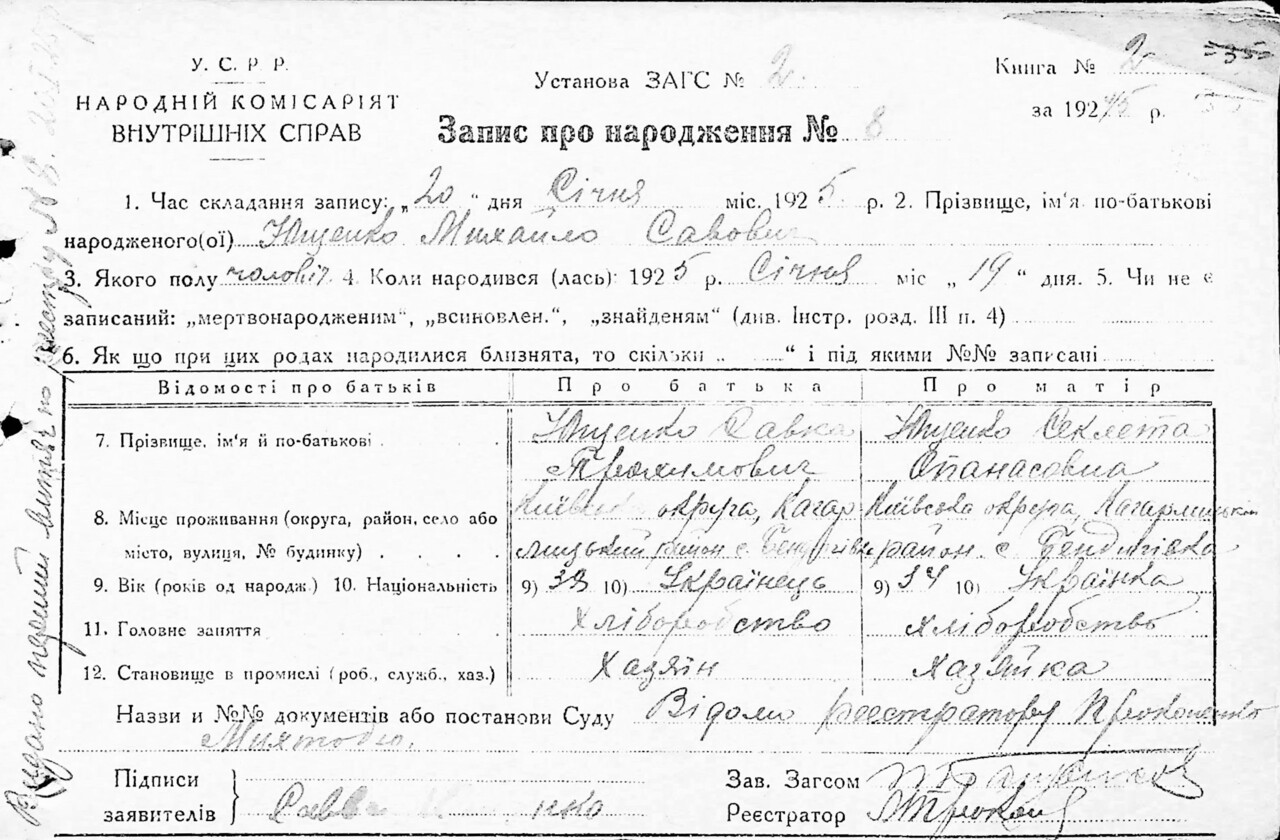 У. С. Р. Р.
НАРОДНІЙ КОМІСАРІЯТ
ВНУТРІШНІХ СПРАВ
Установа ЗАГС № 2.
Книга № 2
за 1925 р.
Запис про народження № 8
1. Час складання запису: „20“ дня Січня міс. 1925 р. 2. Прізвище, ім'я по-батькові
народженого(ої) Ющенко Михайло Савович
3. Якого полу чоловіч. 4. Коли народився (лась): 1925 р. Січня міс „19“ дня. 5. Чи не є
записаний: „мертвонародженим“, „всиновлен.“, „знайденям“ (див. Інстр. розд. III п. 4)
6. Як що при цих родах народилися близнята, то скільки „ “ і під якими №№ записані
Відомості про батьків Про батька Про матір
7. Прізвище, ім'я й по-батькові Ющенко Савка Ющенко Секлета
Трохимович Опанасовна
8. Місце проживання (округа, район, село або Київська округа, Кагар Київська округа, Кагарлицький
місто, вулиця, № будинку) лицький район с. Бендюгівка район. с Бендюгівка
9. Вік (років од народж.) 10. Національність 9) 38 10) Українець 9) 34 10) Українка
11. Головне заняття Хліборобство хліборобство
12. Становище в промислі (роб., служб., хаз.) Хазяїн хазяйка
Назви и №№ документів або постанови Суду Відомо реєстратору Прокопенко
Підписи
заявителів
Зав. Загсом
Реєстратор
Видано перший витяг по реєстру № 8.